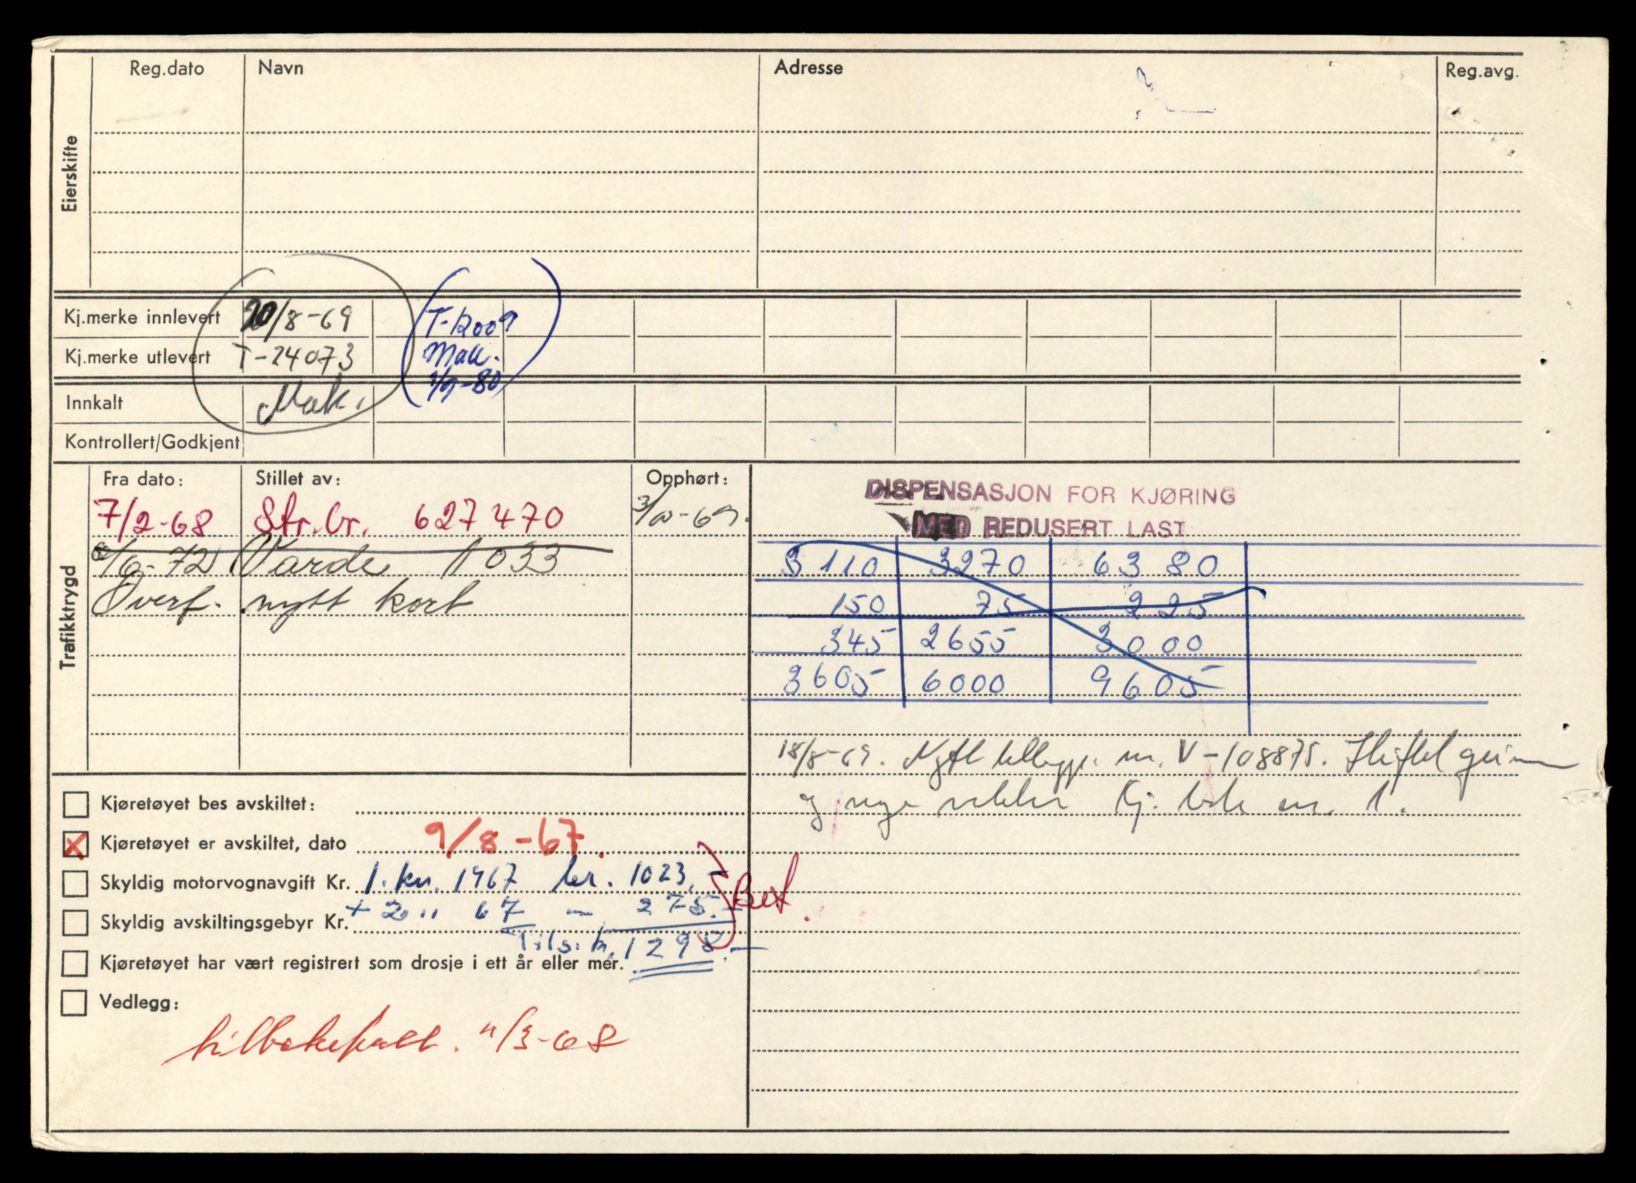 Reg.dato Navn Adresse Reg.avg.
Eierskifte
Kj.merke innlevert 20/8-69 T-12009
Kj.merke utlevert T-24073 Mak.
1/9-80
Innkalt Mak.
Kontrollert/Godkjent
Trafikktrygd
Fra dato: Stillet av: Opphørt:
7/2-68 Str.br. 627470 3/10-69.
/6-72 Varde 1033
Overf. nytt kort
DISPENSASJON FOR KJØRING
MED REDUSERT LAST
3110 3270 6380
150 75 225
345 2655 3000
3605 6000 9605
18/8-69. Nytt tillegg. nr. V-108875. Skiftet
og nye Kj. bok nr. 1.
Kjøretøyet bes avskiltet:
X Kjøretøyet er avskiltet, dato 9/8-67.
Skyldig motorvognavgift Kr. 1. kv. 1967 kr. 1023.- Bet.
Skyldig avskiltingsgebyr Kr. + 2. " 67 - 275.-
Tils. kr. 1298.-
Kjøretøyet har vært registrert som drosje i ett år eller mer.
Vedlegg:
tilbakekalt. 11/3-68